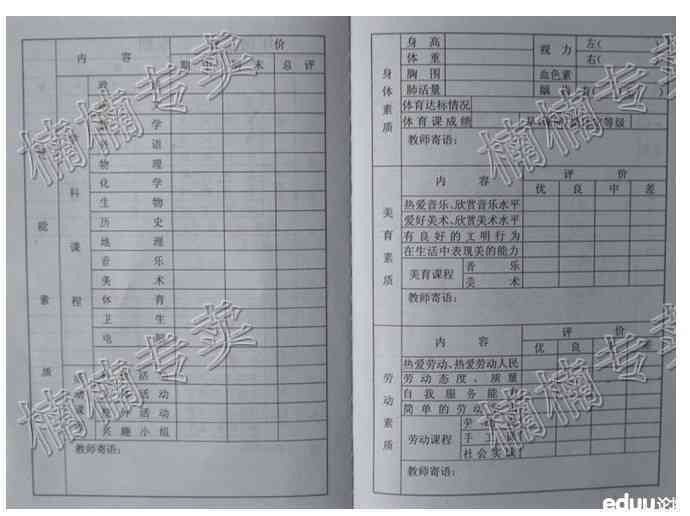 内 容 价
期 末 总 评
能 素 质
科 课 程
学
语
物 理
化 学
生 物
历 史
地 理
音 乐
美 术
体 育
卫 生
电
活 动
兴 趣 小 组
教师寄语:
身体素质
身 高 视 力 左(
体 重 右(
胸 围 血色素
肺活量
体育达标情况
体 育 课 成 绩 等级
教师寄语:
美育素质
内 容 评 价
优 良 中 差
热爱音乐、欣赏音乐水平
爱好美术、欣赏美术水平
有 良 好 的 文 明 行 为
在生活中表现美的能力
美育课程 音 乐
美 术
教师寄语:
劳动素质
内 容 评 价
优 良
热爱劳动、热爱劳动人民
劳 动 态 度 、 质 量
自 我 服 务 能
简 单 的 劳 动
劳动课程 劳
手 工
社 会 实 践
教师寄语:
楠楠专卖
楠楠专卖
楠楠专卖
楠楠专卖
eduu论坛